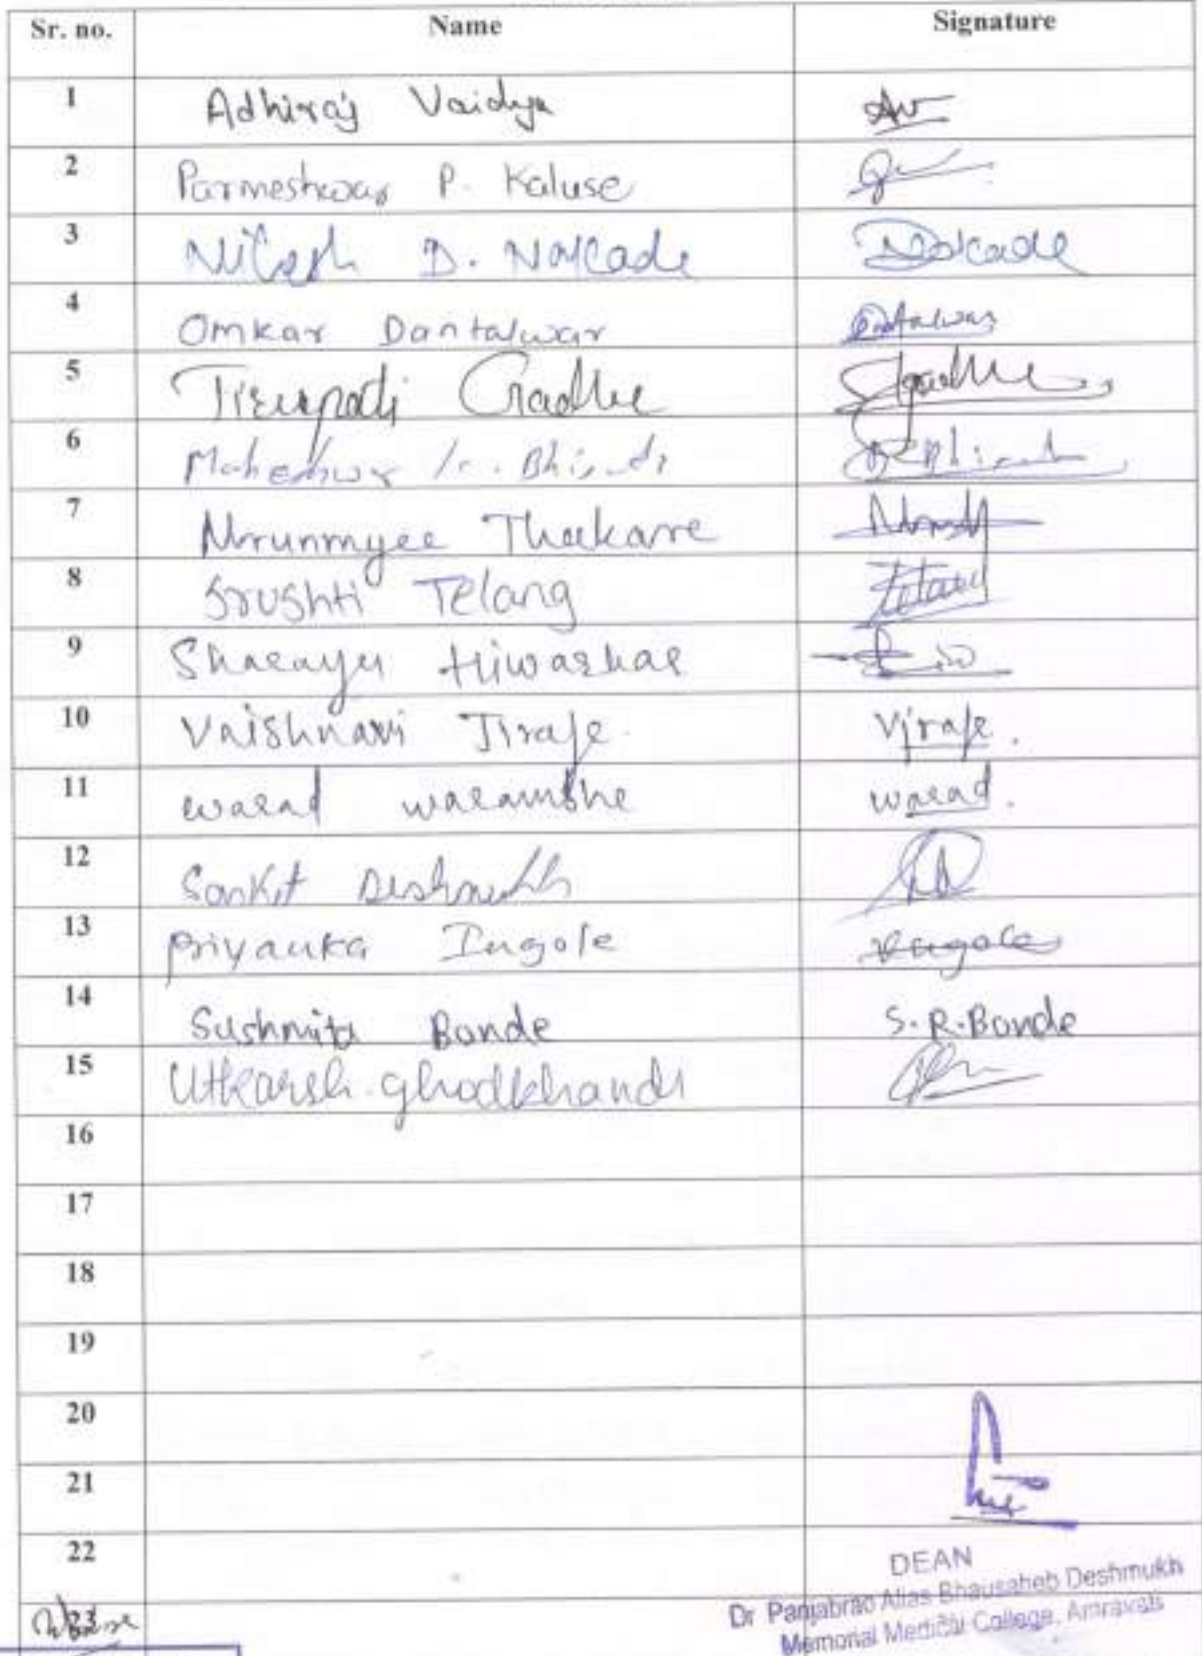 Sr. no. Name Signature
1 Adhiraj Vaidya AV
2 Parmeshwar P. Kaluse
3 Nilesh D. Nakade Nakade
4 Omkar Dantalwar Dantalwar
5 Tirupati Gadhe Sgadhe
6 Maheshwar
7 Mrunmyee Thakare
8 Srushti Telang
9 Sharayu Hiwarkar
10 Vaishnavi Jirafe. Vjirafe.
11 warad warambhe warad.
12 Sanket Deshmukh
13 Priyanka Ingole
14 Sushmita Bonde S. R. Bonde
15 Utkarsh. ghodkhandi
16
17
18
19
20
21
22
DEAN
Dr Panjabrao Alias Bhausaheb Deshmukh
23
Memorial Medical College, Amravati